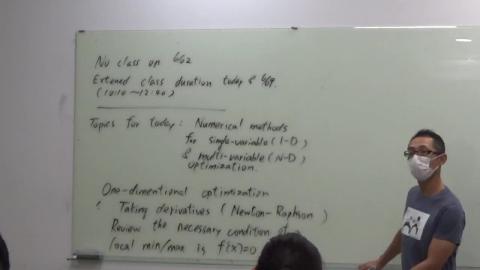 No class on 6/2
Extened class duration today & 6/9.
(10:10 ~ 12:40)
Topics for today: Numerical methods
for single-variable (1-D)
& multi-variable (N-D)
optimization.
One-dimentional optimization
Taking derivatives (Newton-Raphson)
Review the necessary condition of
local min/max is f'(x)=0